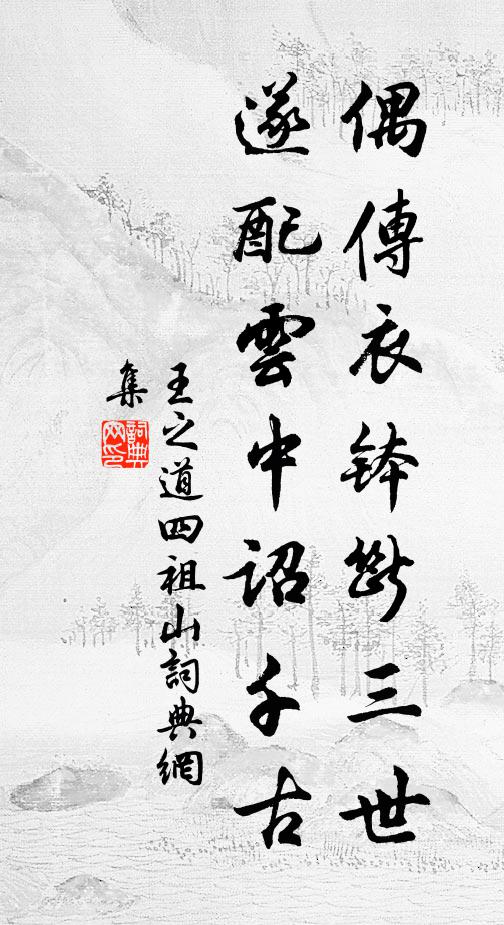 偶傳衣鉢斷三世
遂配雲中詔千古
王之道四祖山詞典網
集
詞典
网印